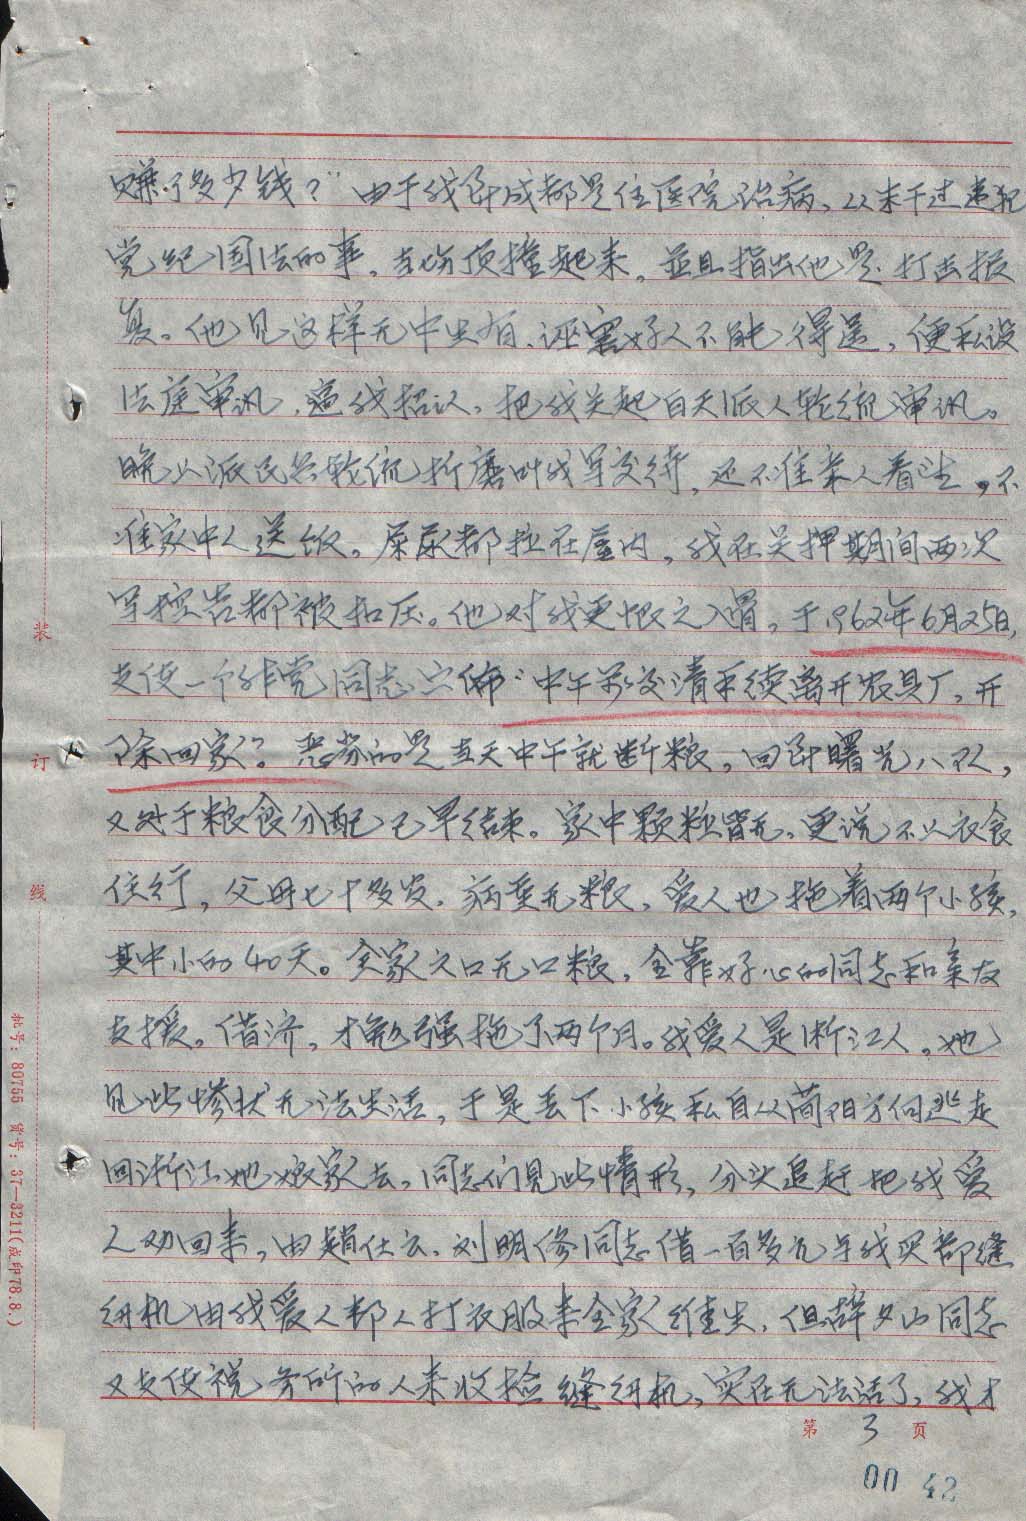 赚了多少钱？”由于我到成都是住医院治病，从未干过违犯
党纪国法的事，当场顶撞起来，並且指出他是打击报
复。他见这样无中生有，诬害好人不能得逞，便私设
法庭审讯，逼我招认，把我关起白天派人轮流审讯。
晚上派民兵轮流折磨叫我写交待，还不准亲人看望，不
准家中人送饭。屎尿都拉在屋内，我在关押期间两次
写控告都被扣压。他对我更恨之入骨，于1962年6月25日，
支使一个非党同志宣佈“中午前交清手续离开农具厂，开
除回家”。恶劣的是当天中午就断粮，回到曙光八队，
又处于粮食分配已早结束。家中颗粒皆无，更说不上衣食
住行，父母七十多岁，病重无粮，爱人也拖着两个小孩，
其中小的40天。全家六口无口粮，全靠好心的同志和亲友
支援，借济，才勉强拖了两个月。我爱人是浙江人，她
见此惨状无法生活，于是丢下小孩私自从简阳方向逃走
回浙江她娘家去，同志们见此情形，分头追赶把我爱
人劝回来，由赵仕云、刘明修同志借一百多元与我买部缝
纫机由我爱人帮人打衣服来全家维生，但薛夕山同志
又支使税务所的人来收检缝纫机，实在无法活了，我才
第 3 页
00 42
装
订
线
批号：80755 货号：37—3211(成印78.8.)